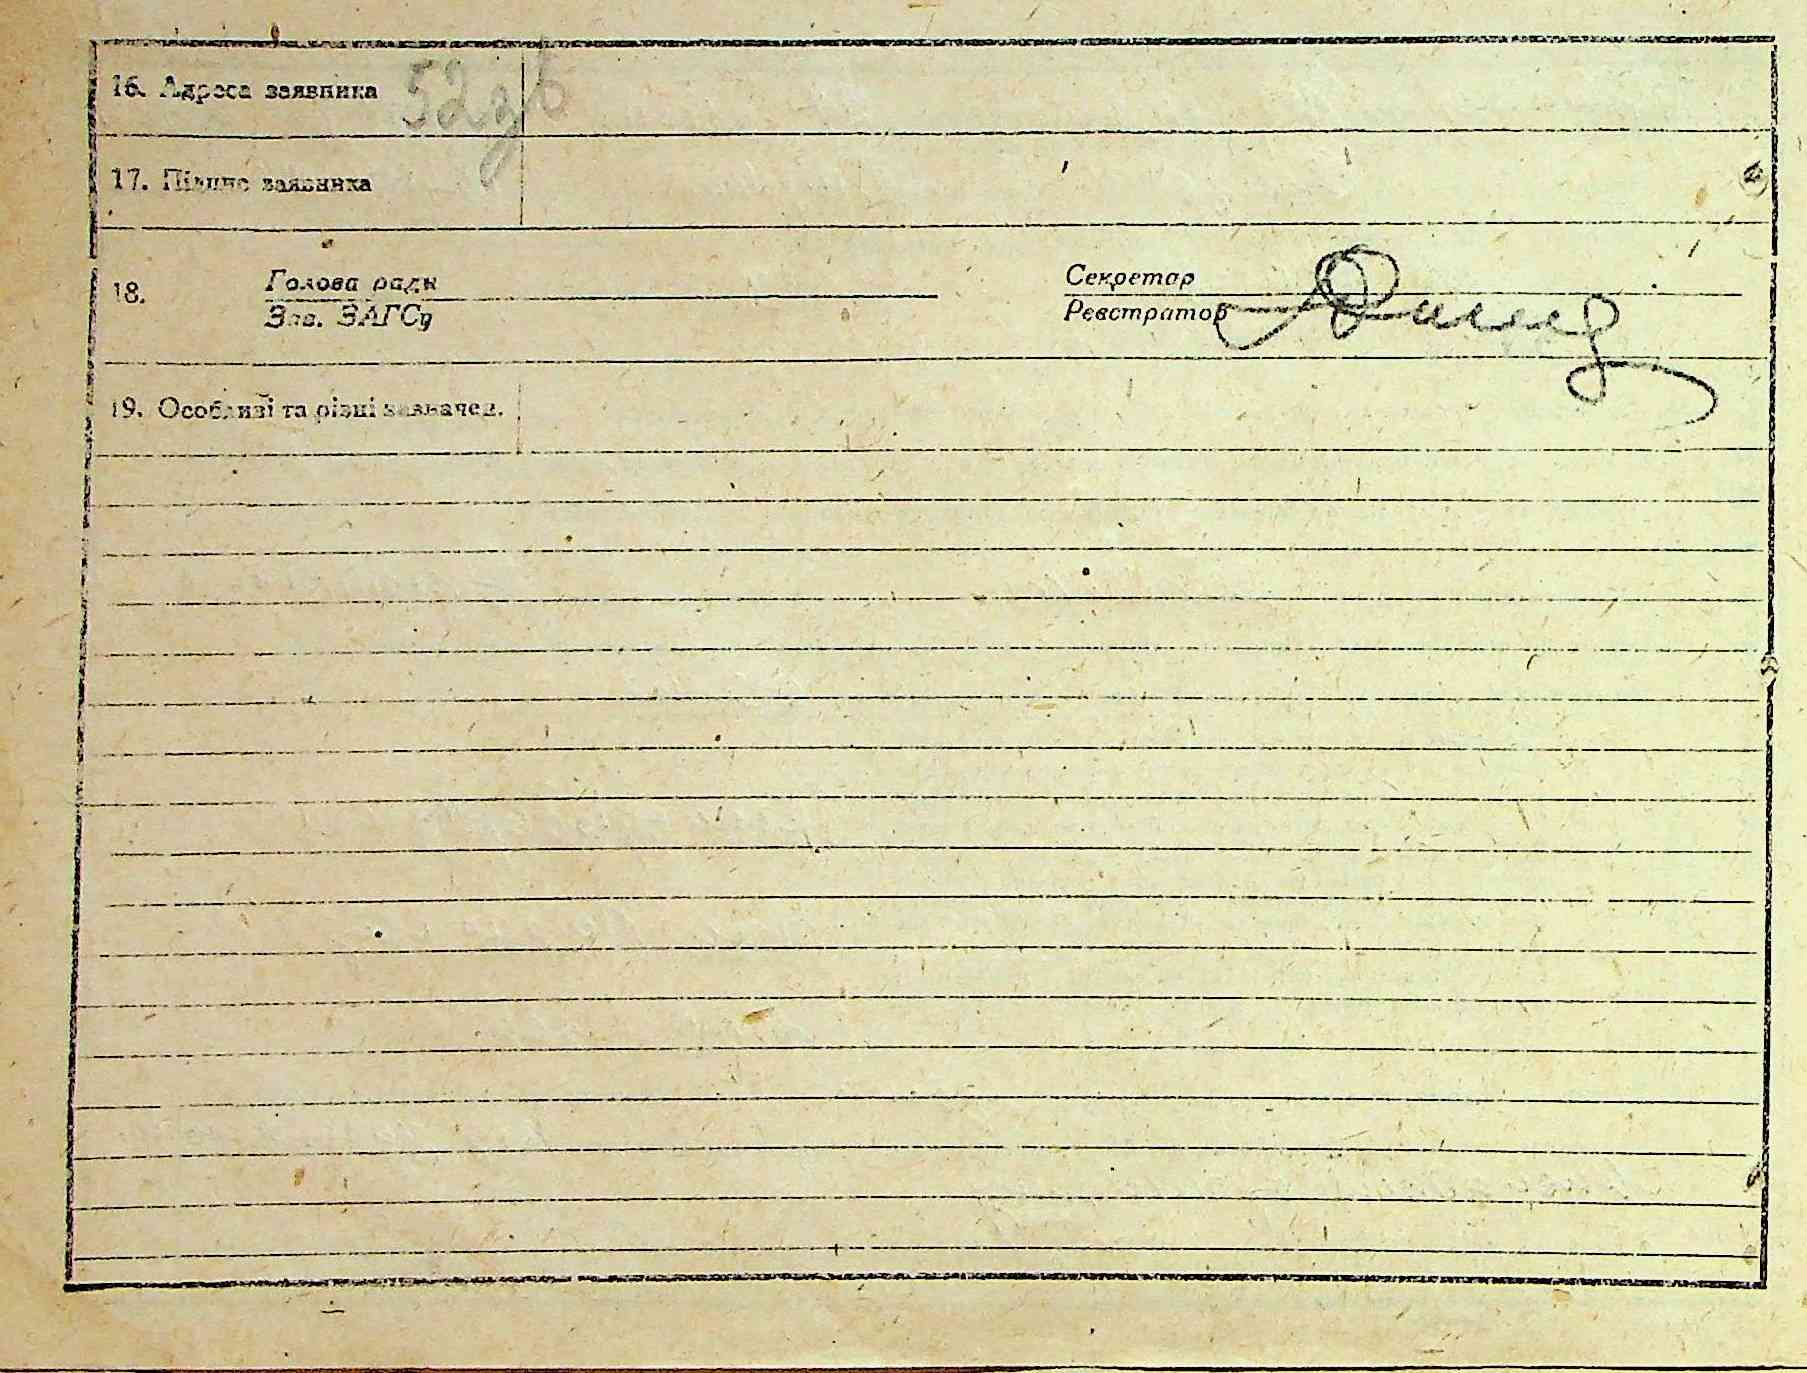 16. Адреса заявника 52зв
17. Підпис заявника
18. Голова ради Секретар
Зав. ЗАГСу Реєстратор
19. Особливі та різні зазначен.